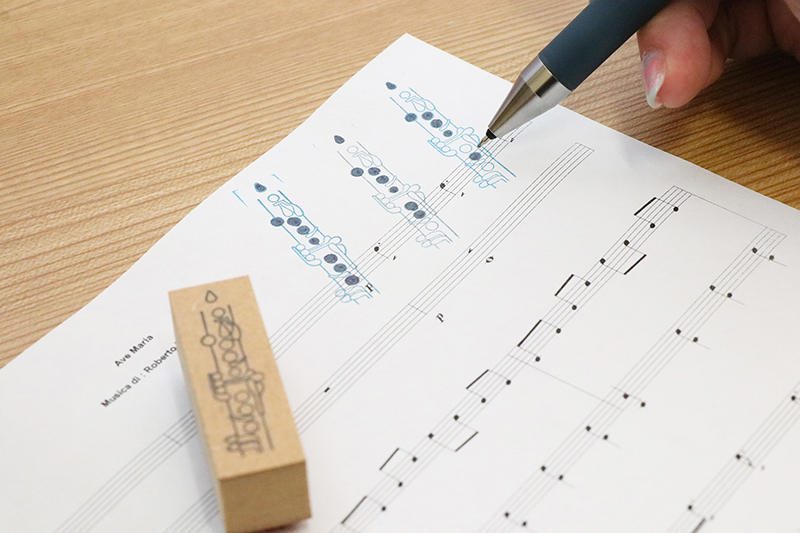 Ave Maria
Musica di : Roberto